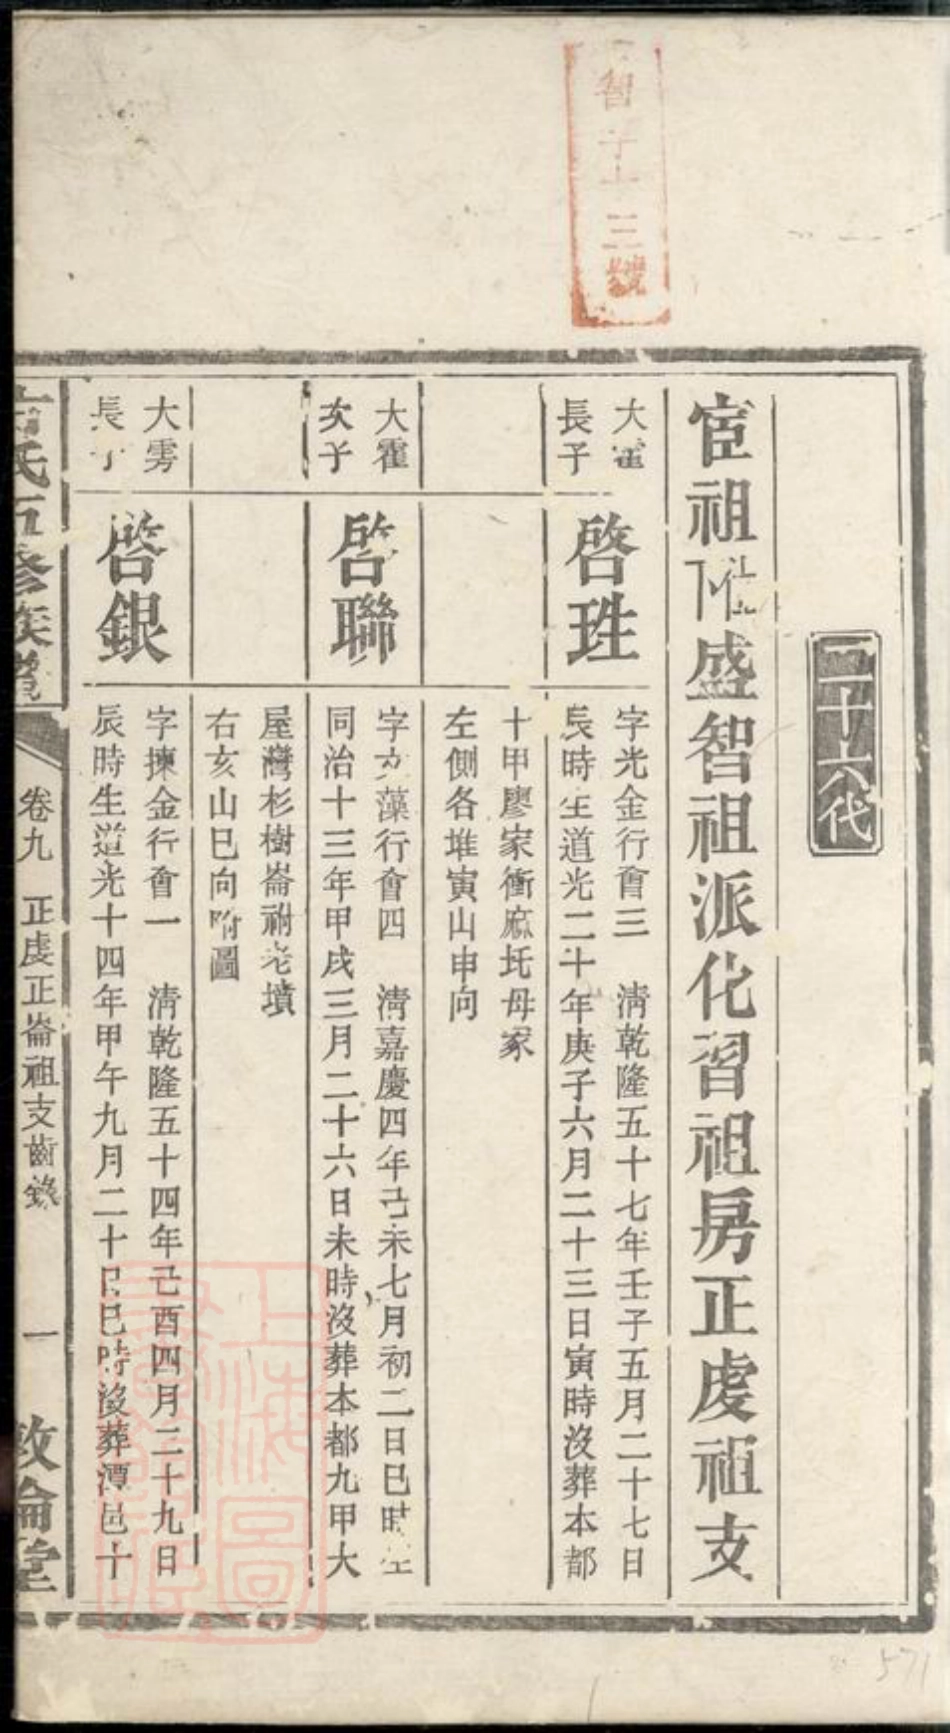 智字十三號
二十六代
宦祖附盛智祖派化習祖房正虔祖支
大霍
長子
啓珄
字光金行會三　清乾隆五十七年壬子五月二十七日
辰時生道光二十年庚子六月二十三日寅時沒葬本都
十甲廖家衝庶圫母家
左側各堆寅山申向
大霍
次子
啓聯
字文藻行會四　清嘉慶四年己未七月初二日巳時生
同治十三年甲戌三月二十六日未時沒葬本都九甲大
屋灣杉樹崙祔老墳
右亥山巳向附圖
大雱
長子
啓銀
字揀金行會一　清乾隆五十四年己酉四月二十九日
辰時生道光十四年甲午九月二十日巳時沒葬潭邑十
氏五修族譜
卷九　正虔正崙祖支齒錄
一
敦倫堂
上海圖
書館藏
571